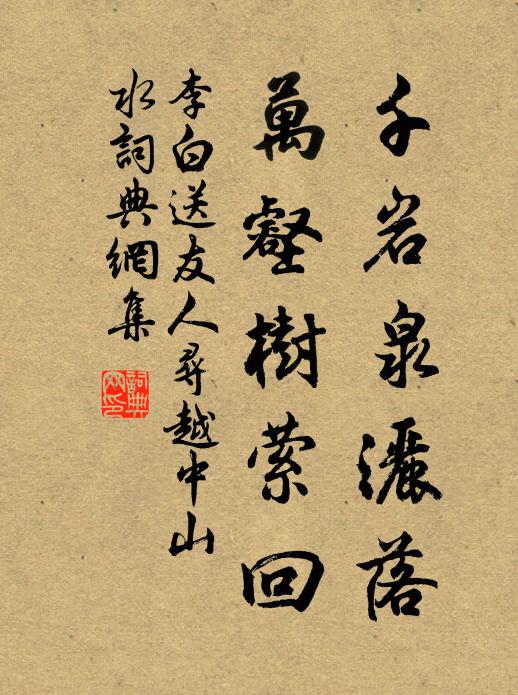 千岩泉灑落
萬壑樹萦回
李白送友人尋越中山
水詞典網集
詞典
网印